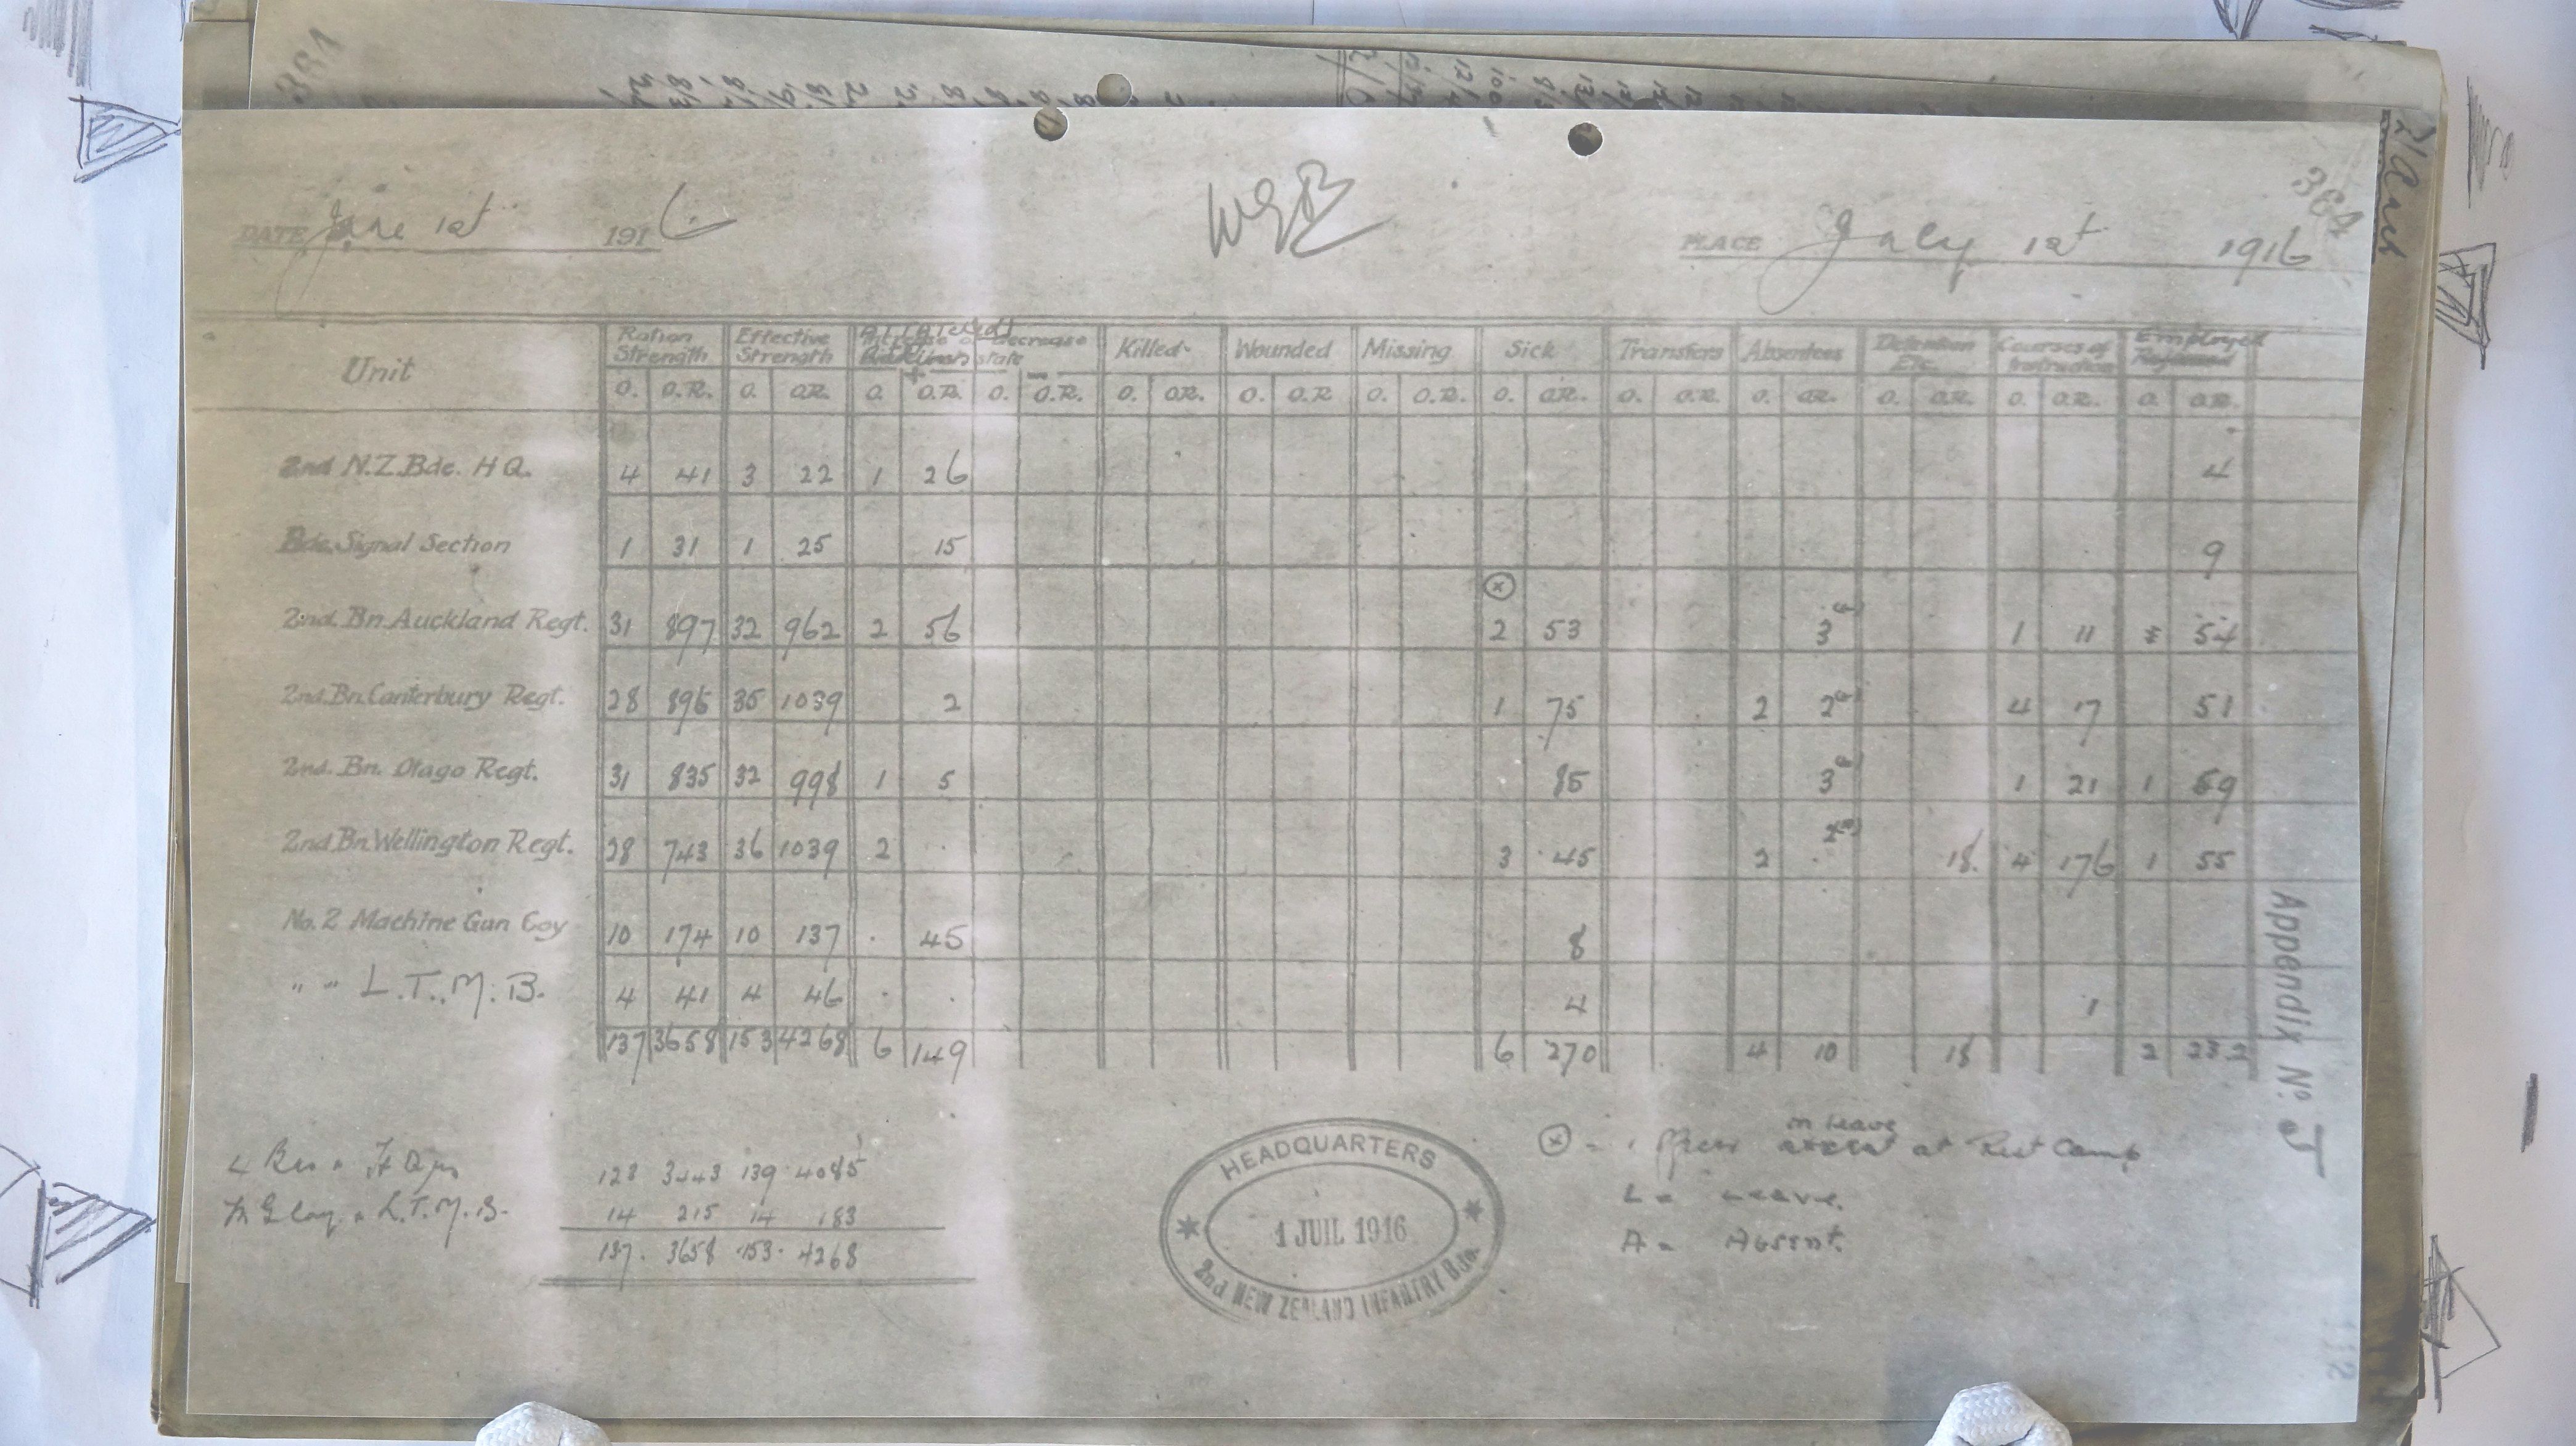 364
DATE June 1st 1916.
WGB
PLACE July 1st 1916
Unit Ration Strength Effective Strength Attached Increase or decrease state + - Killed Wounded Missing Sick Transfers Absentees Detention Etc. Courses of Instruction Employed
O. O.R. O. O.R. O. O.R. O. O.R. O. O.R. O. O.R. O. O.R. O. O.R. O. O.R. O. O.R. O. O.R. O. O.R. O. O.R.
2nd N.Z. Bde. H Q. 4 41 3 22 1 26 4
Bde. Signal Section 1 31 1 25 15 9
2nd. Bn. Auckland Regt. 31 897 32 962 2 56 ⓧ 2 53 3 1 11 54
2nd. Bn. Canterbury Regt. 28 896 35 1039 2 1 75 2 2 4 17 51
2nd. Bn. Otago Regt. 31 835 32 998 1 5 85 3 1 21 1 59
2nd Bn. Wellington Regt. 28 743 36 1039 2 3 45 2 2 18. 4 176 1 55
No. 2 Machine Gun Coy 10 174 10 137 . 45 8
" " L.T.M.B. 4 41 4 46 . . 4 1
137 3658 153 4268 6 149 6 270 4 10 18 2 232
Appendix No. J
4 Bns + H Qrs 123 3443 139 4085
M G Coy. + L.T.M.B. 14 215 14 183
137. 3658 153. 4268
HEADQUARTERS
1 JUIL 1916
2nd NEW ZEALAND INFANTRY Bde.
ⓧ = 1 Officer on leave at Rest Camp
L = Leave.
A = Absent.
112